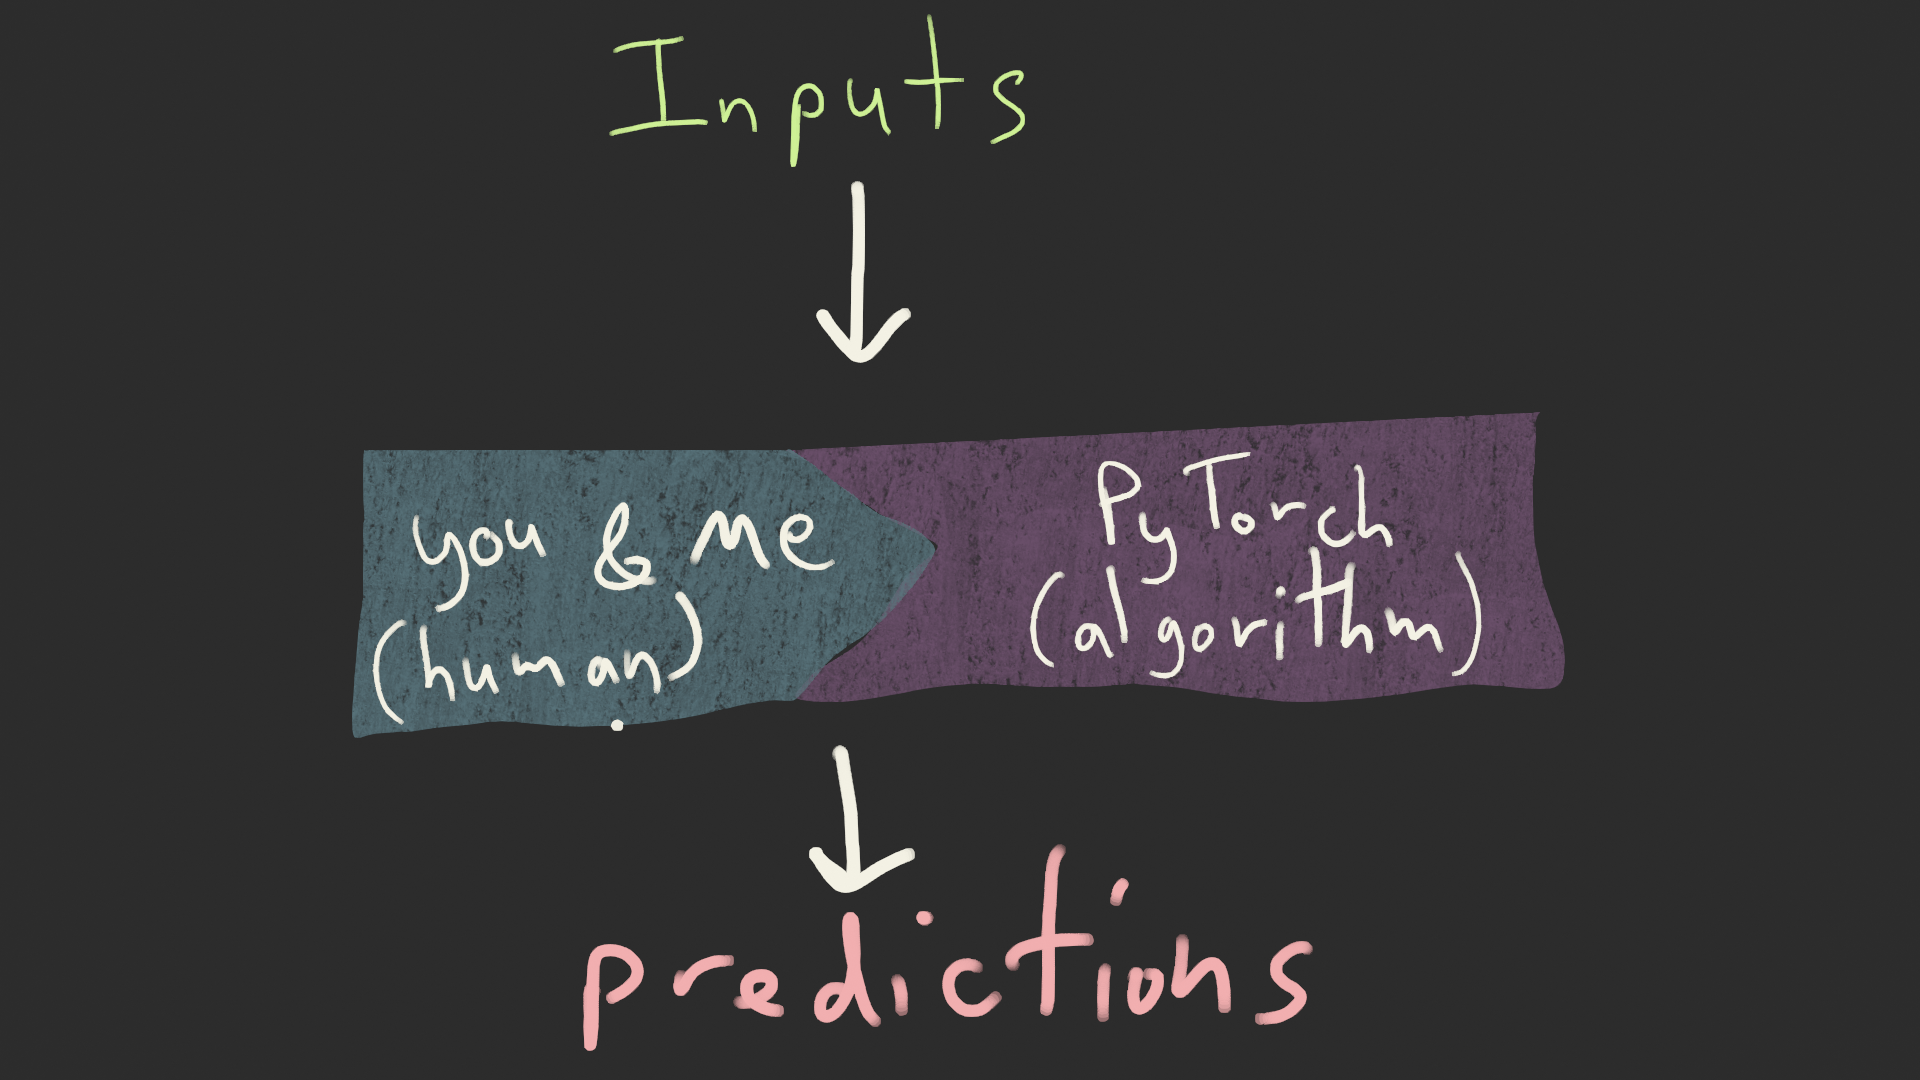 Inputs
you & me
(human)
PyTorch
(algorithm)
predictions